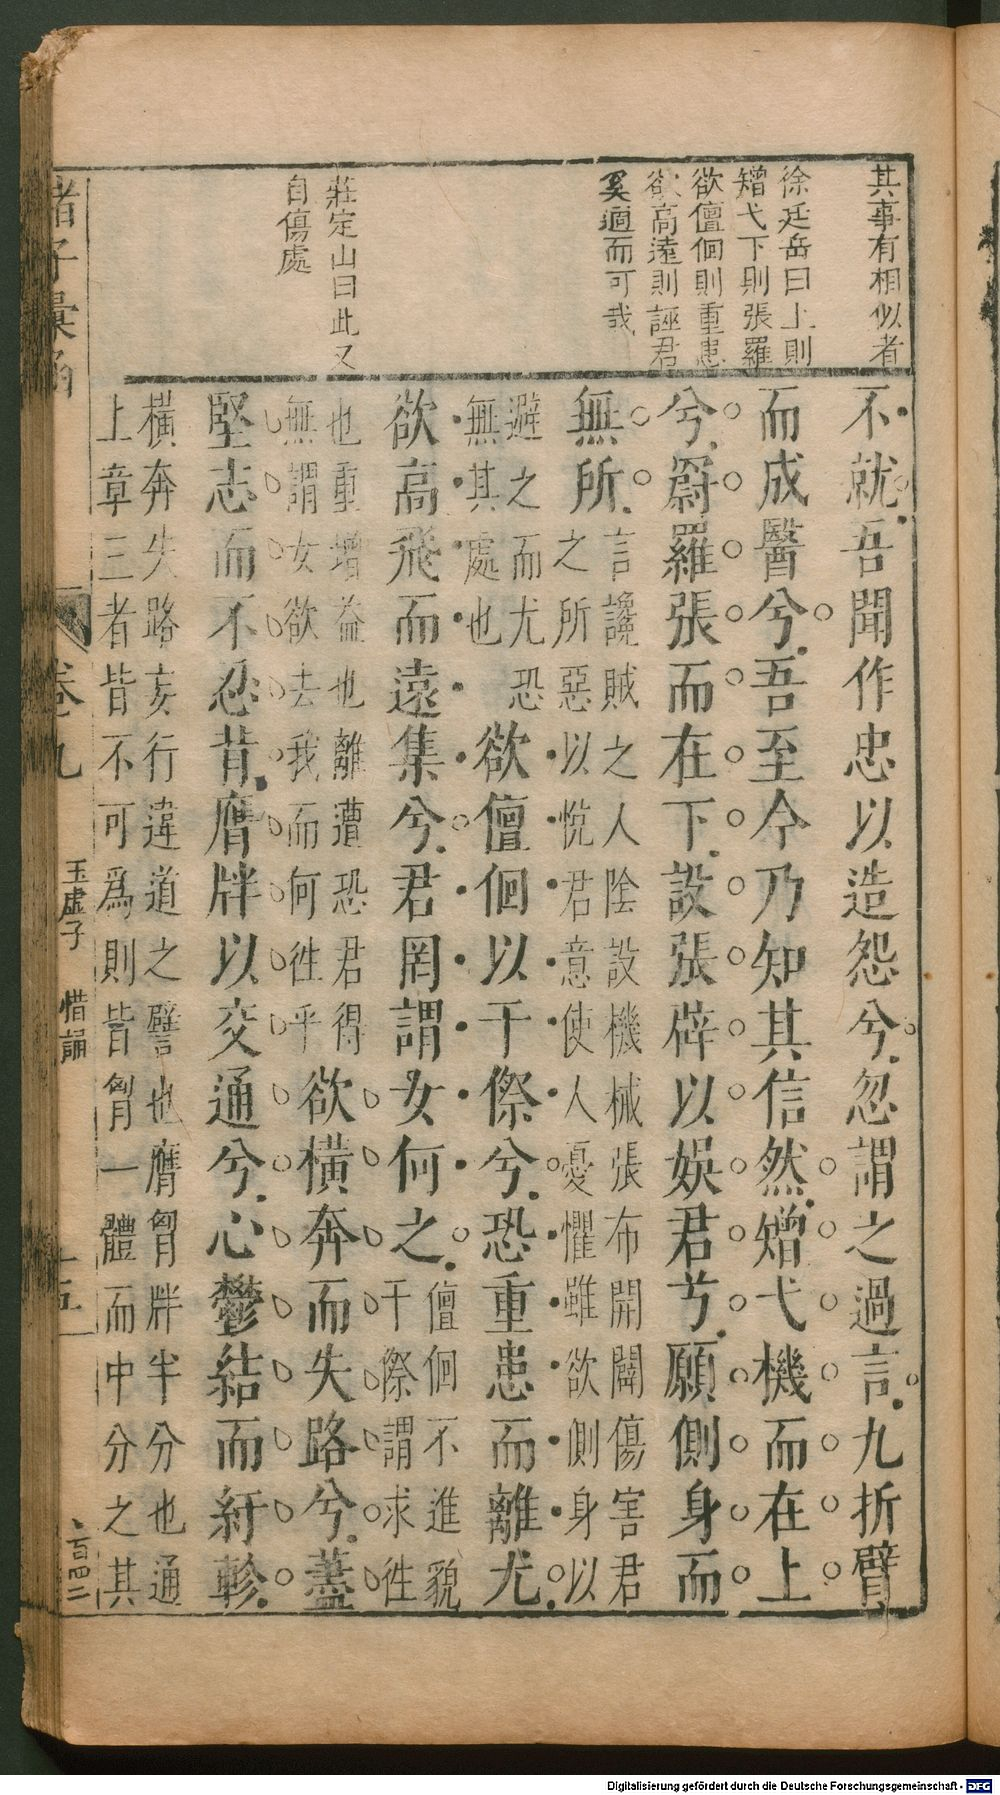 其事有相似者
徐廷岳曰上則
矰弋下則張羅
欲儃佪則重患
欲高遠則誣君
奚適而可哉
莊定山曰此又
自傷處
不就吾聞作忠以造怨兮忽謂之過言九折臂
而成醫兮吾至今乃知其信然矰弋機而在上
兮罻羅張而在下設張辟以娛君兮願側身而
無所
言讒賊之人陰設機械張布開闢傷害君
之所惡以悅君意使人憂懼雖欲側身以
避之而尤恐
無其處也
欲儃佪以干傺兮恐重患而離尤
欲高飛而遠集兮君罔謂女何之
儃佪不進貌
干傺謂求徃
也重增益也離遭恐君得
無謂女欲去我而何徃乎
欲橫奔而失路兮蓋
堅志而不忍背膺牉以交通兮心鬱結而紆軫
橫奔失路妄行違道之譬也膺胷牉半分也通
上章三者皆不可爲則皆胷一體而中分之其
諸子彙函
卷九
玉虛子 惜誦
十五
一百四二
Digitalisierung gefördert durch die Deutsche Forschungsgemeinschaft - DFG